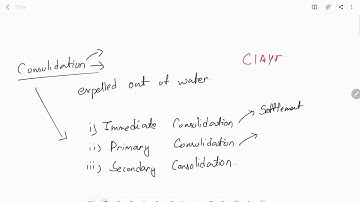 Title
Clays
Consolidation
expelled out of water.
i) Immediate Consolidation Settlement
ii) Primary Consolidation
iii) Secondary Consolidation.